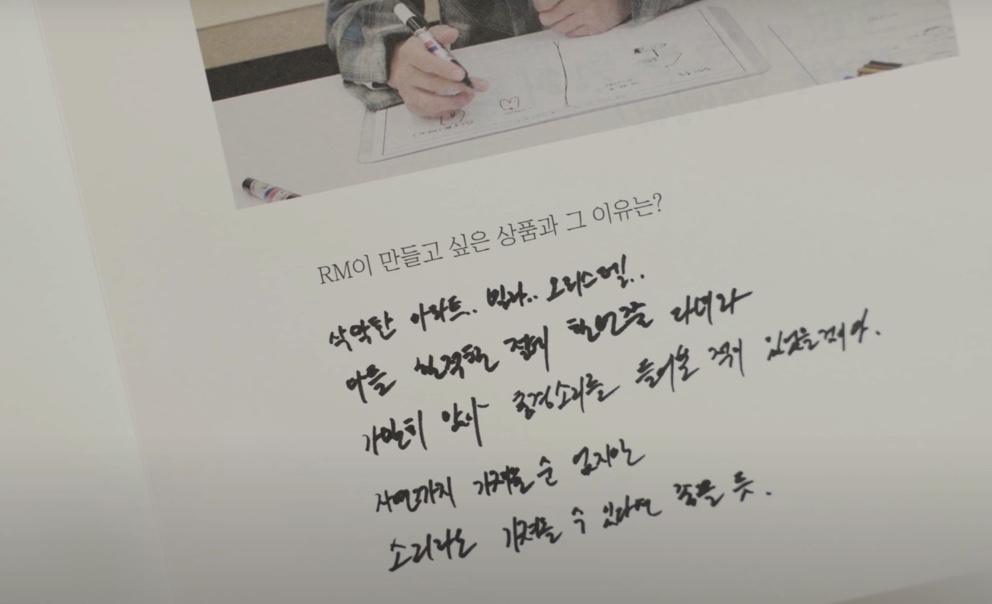 RM이 만들고 싶은 상품과 그 이유는?
삭막한 아파트.. 빌라.. 오피스텔..
다들 한적한 절에 한번쯤 다녀와
가만히 앉아 풍경소리를 들어본 적이 있었을거야.
자연까지 가져올 순 없지만
소리라도 가져올 수 있다면 좋을 듯.